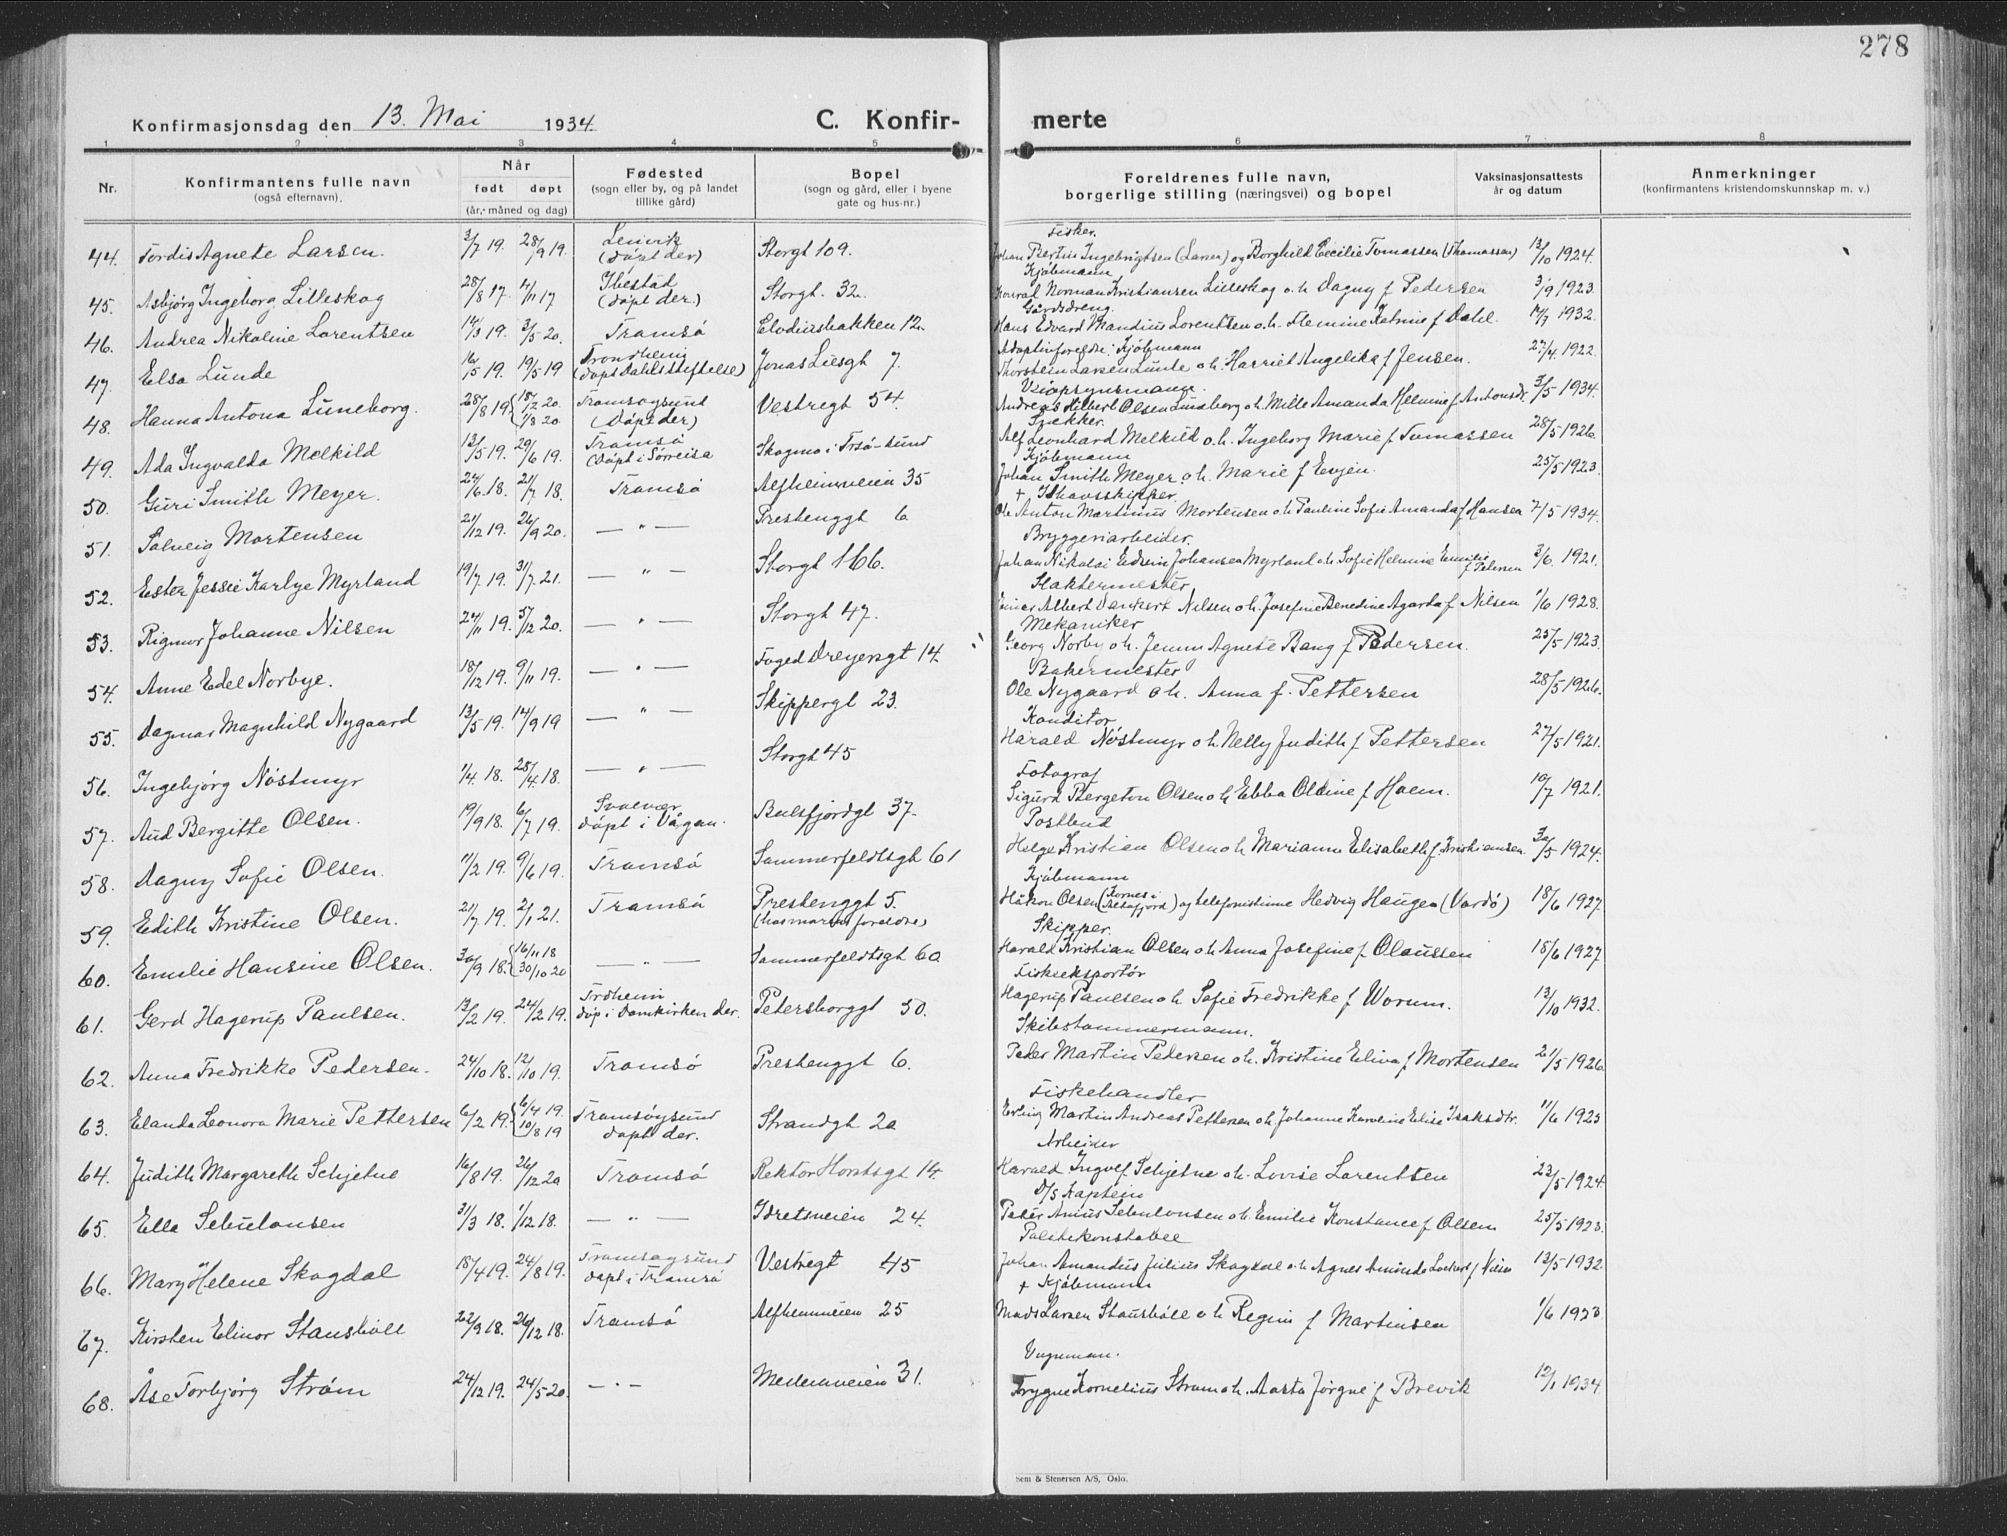 278
Konfirmasjonsdag den 13. Mai 1934. C. Konfir- merte
1 2 3 4 5 6 7 8
Nr. Konfirmantens fulle navn (også efternavn). Når født døpt (år, måned og dag) Fødested (sogn eller by, og på landet tillike gård) Bopel (sogn og gård, eller i byene gate og hus-nr.) Foreldrenes fulle navn, borgerlige stilling (næringsvei) og bopel Vaksinasjonsattests år og datum Anmerkninger (konfirmantens kristendomskunnskap m. v.)
44. Tordis Agnete Larsen. 3/7 19. 28/9 19. Lenvik (døpt der) Storgt 109. Fisker. Johan Bertin Ingebrigtsen (Larsen) og Borghild Cecilie Tomassen (Thomassen) 13/10 1924.
45. Asbjørg Ingeborg Lilleskog 28/8 17. 4/11 17 Ibestad (døpt der.) Storgt. 32. Kjøbmann Konrad Norman Kristiansen Lilleskog o. h. Dagny f. Pedersen 3/9 1923.
46. Andrea Nikoline Lorentsen 14/3 19. 3/5 20. Tromsø Elvdiersbakken 12. Gårdsdreng. Hans Edvard Mandius Lorentsen o. h. Flemine Katrine f Dahl. 14/7 1932.
47. Elsa Lunde 16/5 19. 19/5 19 Trondheim (døpt Dahlsstiftelse) Jonas Liesgt 7. Adoptivforeldre: Kjøbmann Thorstein Larsen Lunde o. h. Harriet Angelika f Jensen. 27/4 1922.
48. Hanna Antona Luneborg. 28/8 19 {18/12 20. 1/8 20 Tromsøysund (Døpt der) Vestregt 54. Opsynsmann. Andreas Hilbert Olsen Luneborg o. h. Mille Amanda Helmine f Antonsdt. 3/5 1934.
49. Ada Ingvalda Melkild 13/5 19. 29/6 19. Tromsø (Døpt i Sørreisa Skogmo i Trsø-sund Snekker. Alf Leonhard Melkild o. h. Ingeborg Marie f Tomassen 28/5 1926.
50. Guri Smith Meyer. 24/6 18. 21/7 18. Tromsø Alfheimveien 35 Kjøbmann Johan Smith Meyer o. h. Marie f Evjen. 25/5 1923.
51. Solveig Mortensen 21/12 19. 26/9 20. — " — Prestenggt 6 + Ishavsskipper. Ole Anton Martinus Mortensen o. h Pauline Sofie Amanda f Hansen 7/5 1934.
52. Ester Jessie Karlye Myrland 19/7 19. 31/7 21. — " — Storgt 166. Bryggeriarbeider. Johan Nikolai Edvin Johansen Myrland o. h Sofie Helmine Emilie f Petersen 3/6. 1921.
53. Rigmor Johanne Nilsen 24/11 19. 5/12 20. — " — Storgt 47. Slaktermester Einar Albert Dankert Nilsen o. h. Josefine Benedine Agarda f Nilsen 1/6 1928.
54. Anne Edel Norbye. 18/12 19. 9/11 19. — " — Foged Dreyersgt 14. Mekaniker Georg Norby o. h. Jenny Agnete Bang f Pedersen. 25/5 1923.
55. Dagmar Magnhild Nygaard 13/5 19. 14/9 19 — " — Skippergt 23. Bakermester Ole Nygaard o. h. Anna f. Pettersen 28/5 1926.
56. Ingebjørg Nøstmyr 1/4. 18. 28/4. 18. — " — Storgt 45 Konditor Harald Nøstmyr o. h. Nelly Judith f Pettersen 27/5 1921.
57. Aud Bergitte Olsen. 19/9 18. 6/7 19. Svolvær døpt i Vågan. Balsfjordgt 37. Fotograf Sigurd Bergeton Olsen o. h Ebba Oldine f Haem. 10/7 1921.
58. Dagny Sofie Olsen. 11/2 19. 9/6 19. Tromsø Sommerfeldtsgt 61 Postbud Helge Kristian Olsen o. h Marianne Elisabeth f. Kristiansen 30/5 1924.
59. Edith Kristine Olsen. 21/7 19. 2/1 21. Tromsø Prestenggt 5. (hos morens foreldre) Kjøbmann Håkon Olsen ( ) og telefonistinne Hedvig Haugen (Vardø) 18/6 1927.
60. Emilie Hansine Olsen. 30/9 18. {16/11 18 30/10 20 — " — Sommerfeldtsgt 60 Skipper. Harald Kristian Olsen o. h Anna Josefine f. Olaussen 18/6 1927
61. Gerd Hagerup Paulsen. 13/2 19. 24/2 19. Trdheim døp i Domkirken der. Petersborggt 50. Fiskeeksportør Hagerup Paulsen o. h. Sofie Fredrikke f Worum. 13/10 1932.
62. Anna Fredrikke Pedersen. 24/10 18. 12/10 19. Tromsø Prestenggt 6. Skibstømmermann. Peder Martin Pedersen o. h. Kristine Eliva f Mortensen 21/5 1926.
63. Elanda Leonora Marie Pettersen 6/2 19. {6/4 19. 10/8 19 Tromsøysund døpt der. Strandgt 2a Fiskehandler Erling Martin Andreas Pettersen o. h. Johanne Karoline Elise Isaksdtr. 11/6 1925
64. Judith Margareth Schjetne 16/8 19. 26/12 20 Tromsø Rektor Horstsgt 14. Arbeider Harald Ingolf Schjetne o. h. Lovise Larentsen 23/5 1924.
65. Ella Sebulonsen 31/3 18. 1/12 18. — " — Idretsveien 24. D/S Kaptein Peder Anius Sebulonsen o. h. Emilie Konstance f Olsen 25/5 1923.
66. Mary Helene Skogdal 18/4 19. 24/8 19. Tromsøysund døpt i Tromsø Vestregt 45 Politikonstabel Johan Amandus Julius Skogdal o. h Agnes Aminda Lockert f Nilsen 13/5 1932.
67. Kirsten Elinor Stausholl 22/9 18. 26/12 18. Tromsø Alfheimveien 25 + Kjøbmann Mads Larsen Stausholl o. h Regine f Martinsen 1/6 1923
68. Åse Torbjørg Strøm 24/12 19. 24/5 20. — " — Mellemveien 31. Trygve Kornelius Strøm o. h. Aasta Jørgine f Brevik 12/1 1934
Sem & Stenersen A/S, Oslo.